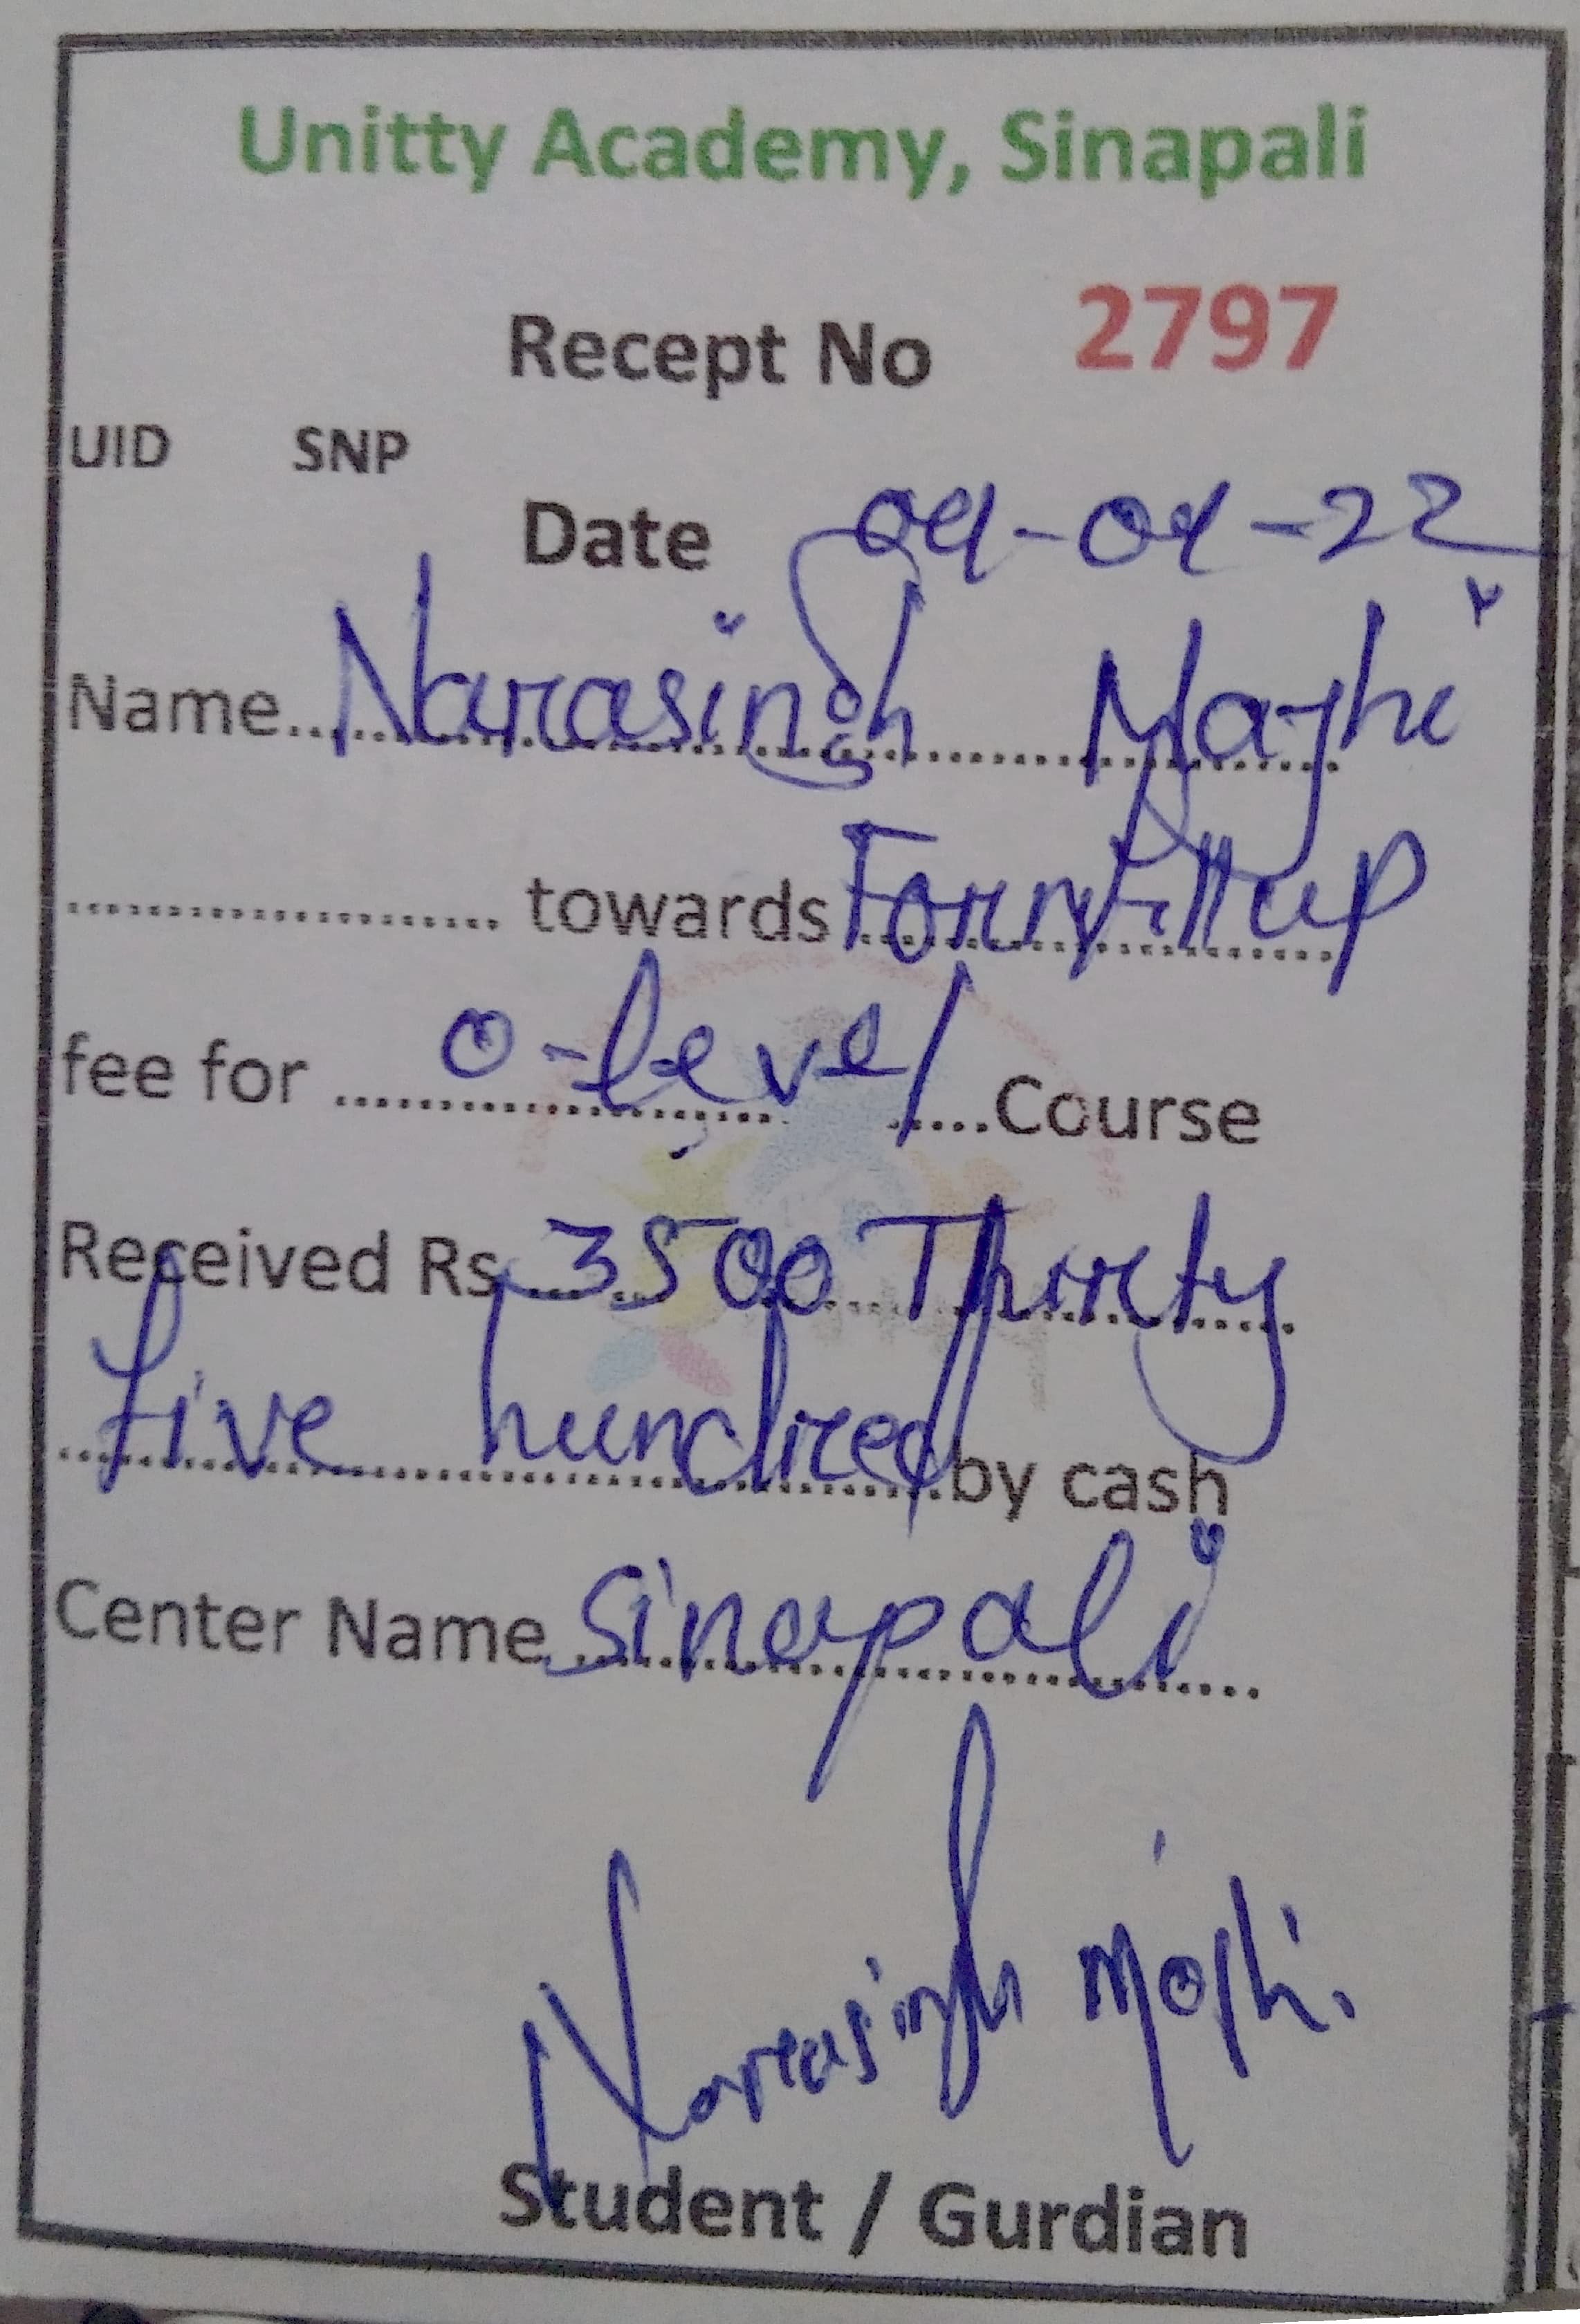 Unitty Academy, Sinapali
Recept No 2797
UID SNP
Date 09-04-22
Name Narasingh Majhi
towards Formfillup
fee for O-level Course
Received Rs 3500 Thirty
five hundred by cash
Center Name Sinapali
Narasingh Majhi.
Student / Gurdian